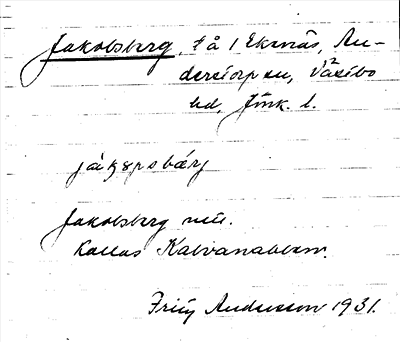 Jakobsberg, t å 1 Ekenäs, An-
derstorp sn, Västbo
hd, Jönk. l.
jàkɷpsbárj
Jakobsberg nu.
kallas Kalvanabben.
Fritz Andersson 1931.